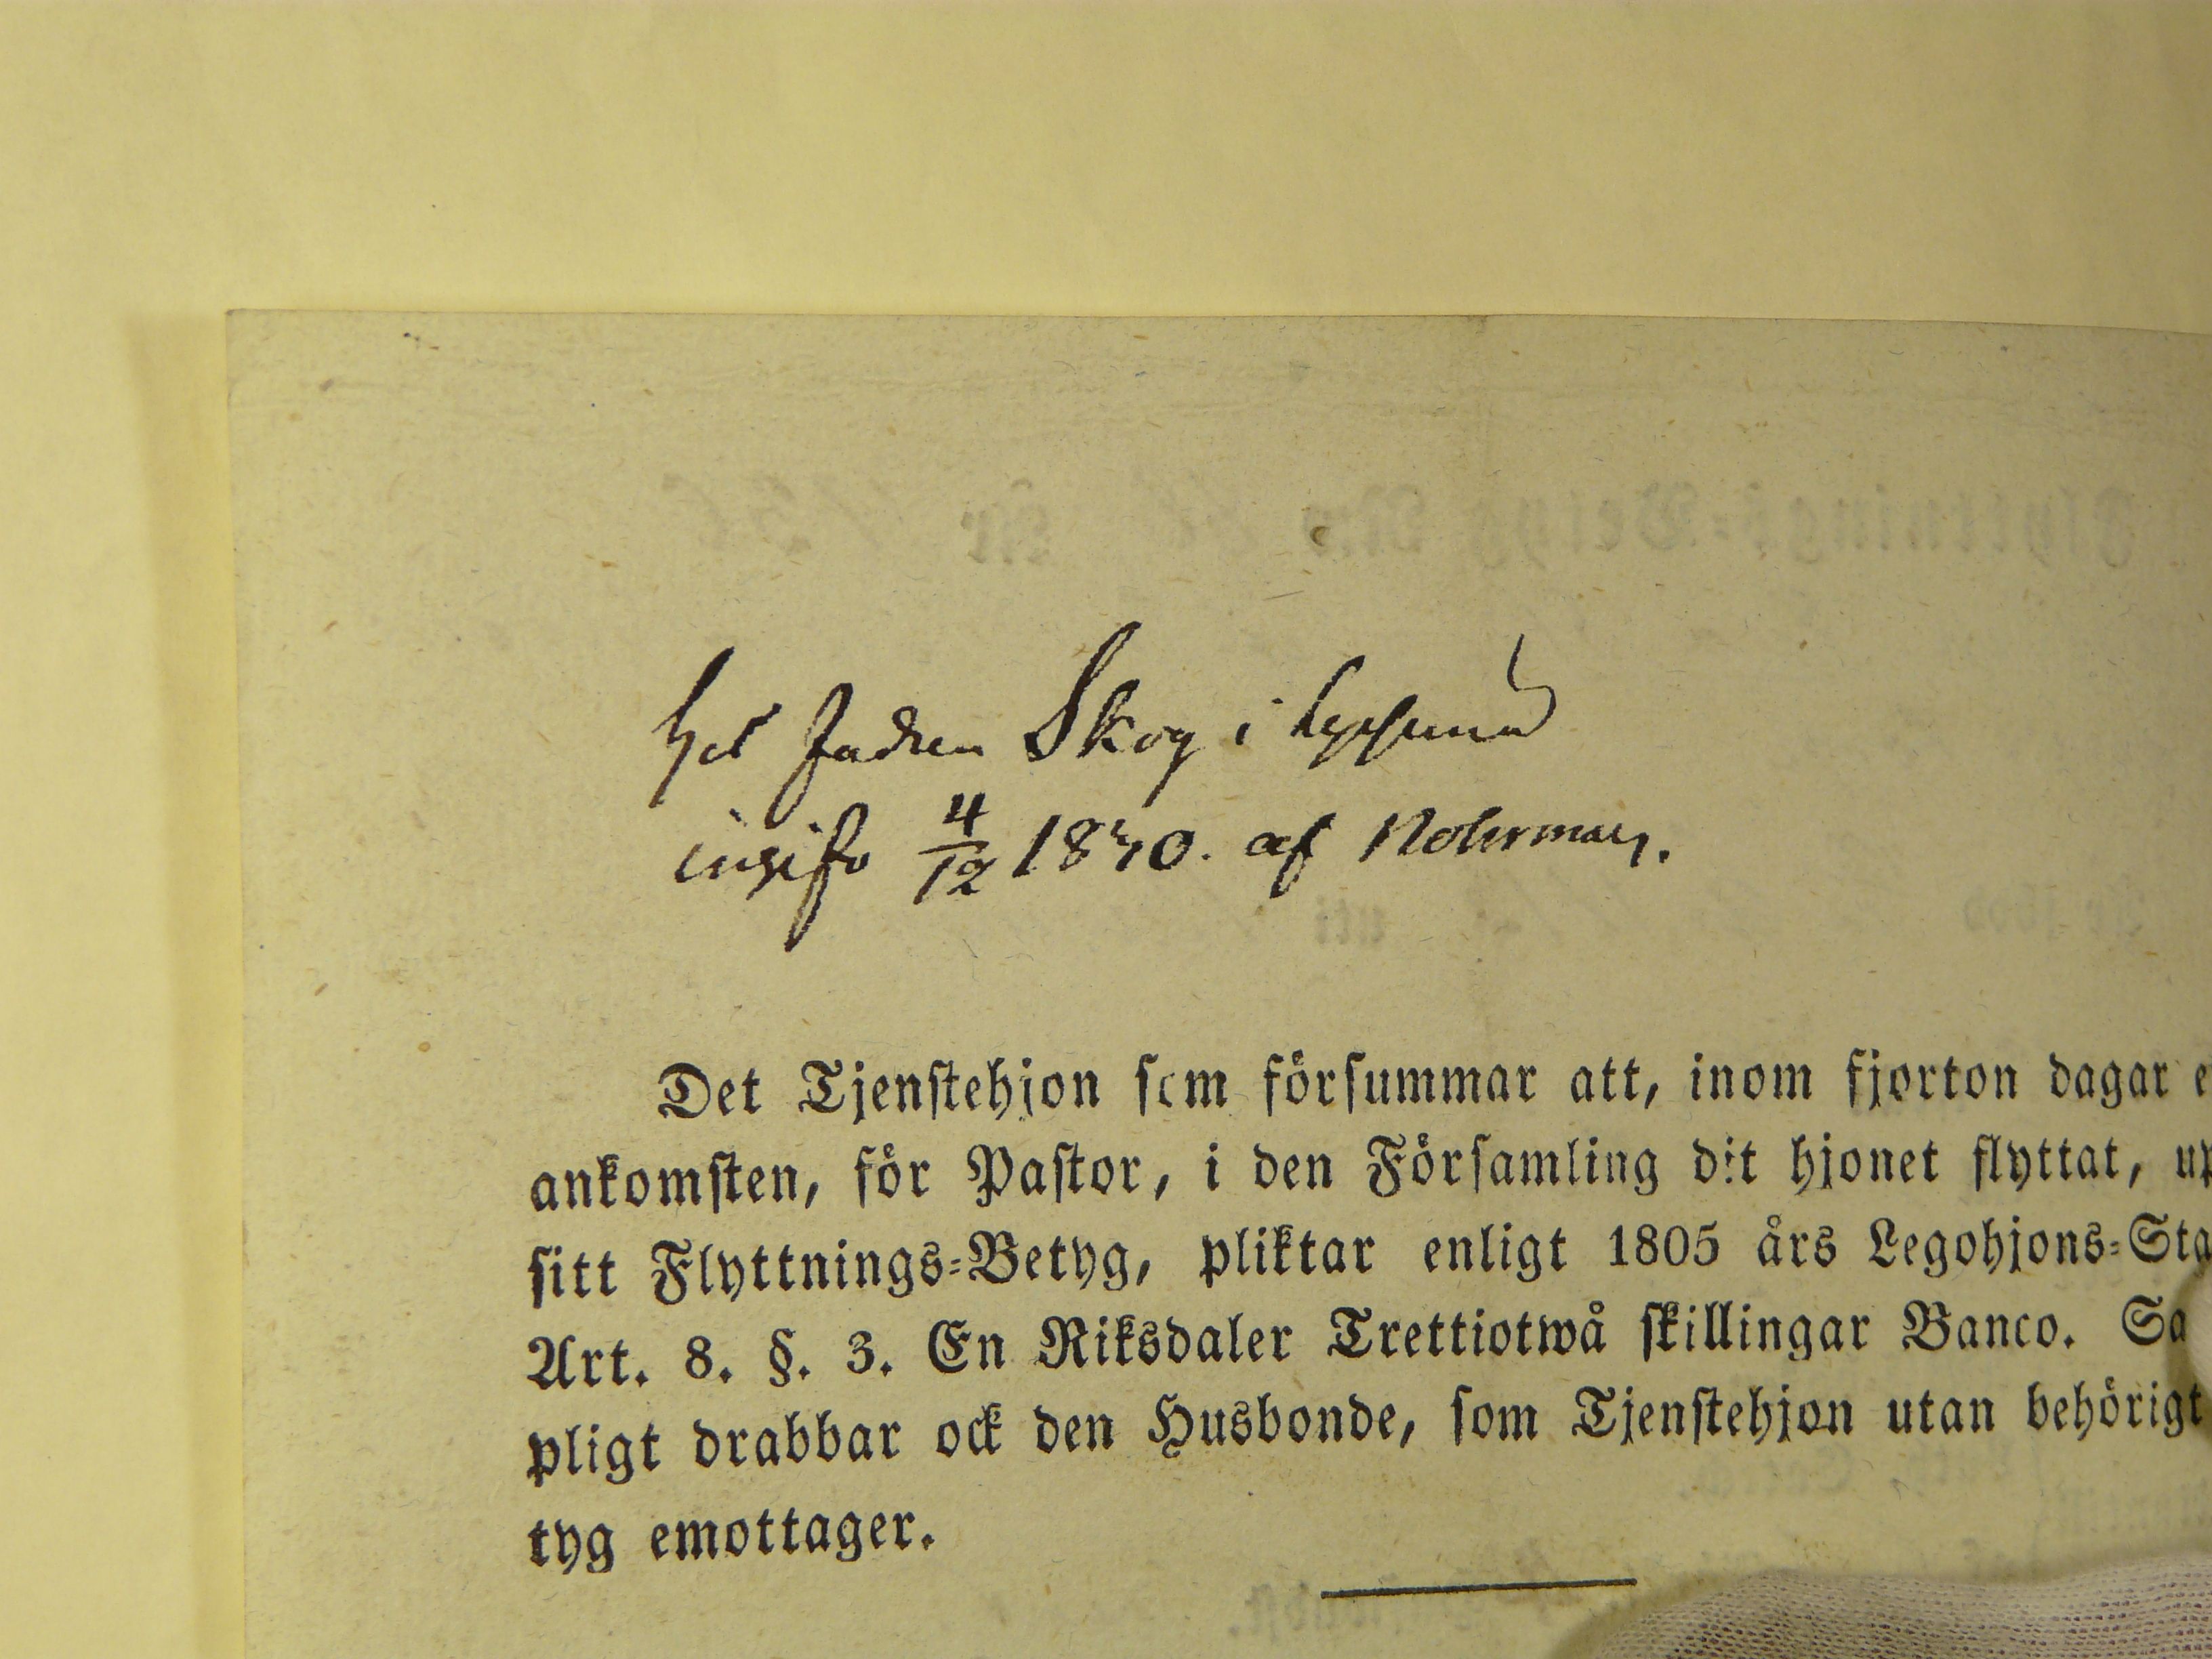 hos fadren Skog i
4/12 1840. af Nohrman.
Det Tjenstehjon som försummar att, inom fjorton dagar e
ankomsten, för Pastor, i den Församling dit hjonet flyttat, up
sitt Flyttnings-Betyg, pliktar enligt 1805 års Legohjons-Sta
Art. 8. §. 3. En Riksdaler Trettiotwå skillingar Banco. Sa
pligt drabbar ock den Husbonde, som Tjenstehjon utan behörigt
tyg emottager.